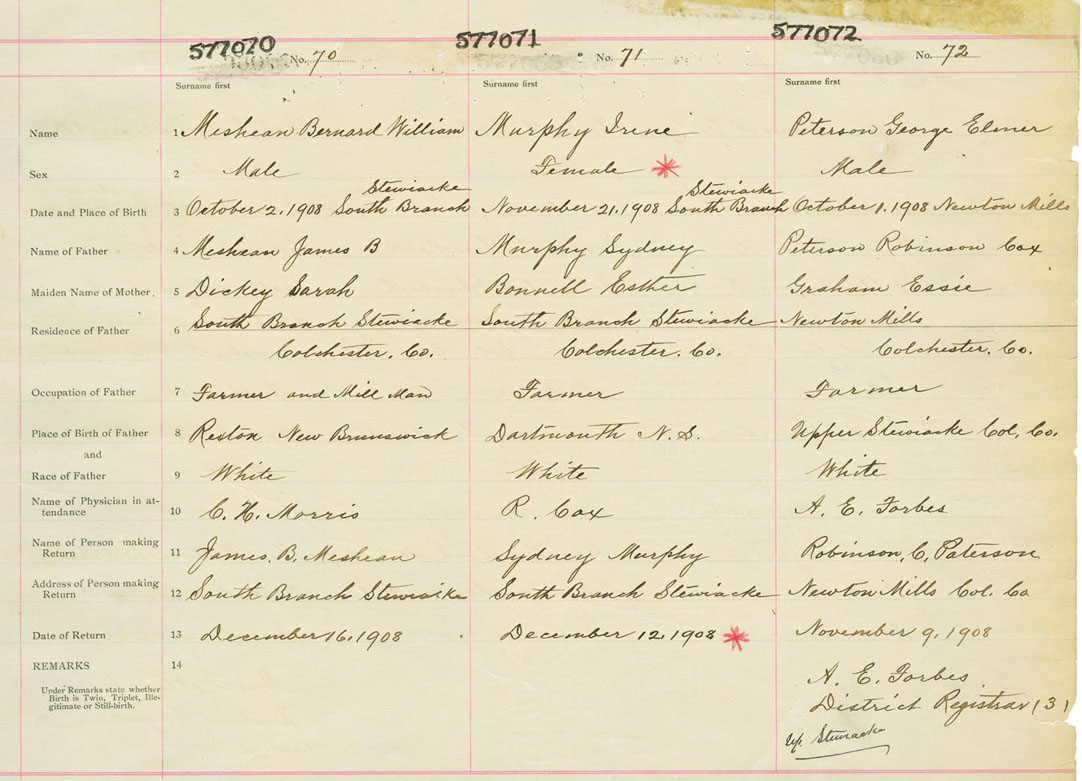 577070 577071 577072
No. 70 No. 71 No. 72
Surname first Surname first Surname first
Name 1 Meshean Bernard William Murphy Irene Peterson George Elmer
Sex 2 Male Female * Male
Stewiacke Stewiacke
Date and Place of Birth 3 October 2, 1908 South Branch November 21, 1908 South Branch October 1, 1908 Newton Mills
Name of Father 4 Meshean James B Murphy Sydney Peterson Robinson Cox
Maiden Name of Mother, 5 Dickey Sarah Bonnell Esther Graham Essie
Residence of Father 6 South Branch Stewiacke South Branch Stewiacke Newton Mills
Colchester. Co. Colchester. Co. Colchester. Co.
Occupation of Father 7 Farmer and Mill Man Farmer Farmer
Place of Birth of Father 8 Rexton New Brunswick Dartmouth N.S. Upper Stewiacke Col. Co.
and
Race of Father 9 White White White
Name of Physician in at-
tendance 10 C. H. Morris R. Cox A. E. Forbes
Name of Person making
Return 11 James. B. Meshean Sydney Murphy Robinson. C. Paterson
Address of Person making
Return 12 South Branch Stewiacke South Branch Stewiacke Newton Mills Col. Co
Date of Return 13 December 16, 1908 December 12, 1908 * November 9, 1908
REMARKS 14
A. E. Forbes
Under Remarks state whether
Birth is Twin, Triplet, Ille-
gitimate or Still-birth.
District Registrar (3)
Up. Stewiacke